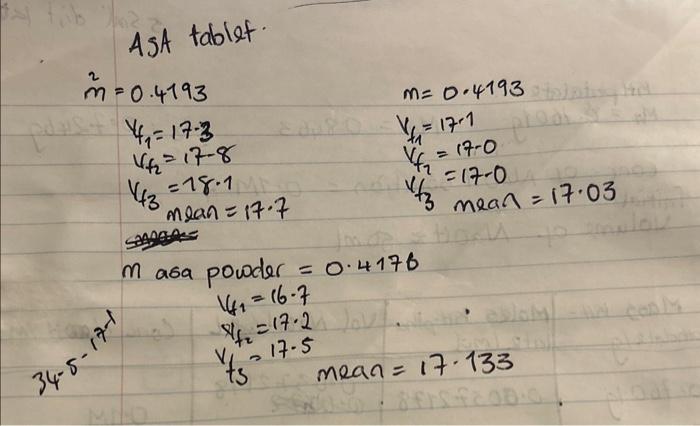 ASA tablet.
m² = 0.4193
Vf1 = 17.3
Vf2 = 17-8
Vf3 = 18.1
mean = 17.7
m = 0.4193
Vf1 = 17.1
Vf2 = 17.0
Vf3 = 17.0
mean = 17.03
m asa powder = 0.4176
Vf1 = 16.7
Vf2 = 17.2
Vf3 = 17.5
mean = 17.133
34-5-17-1